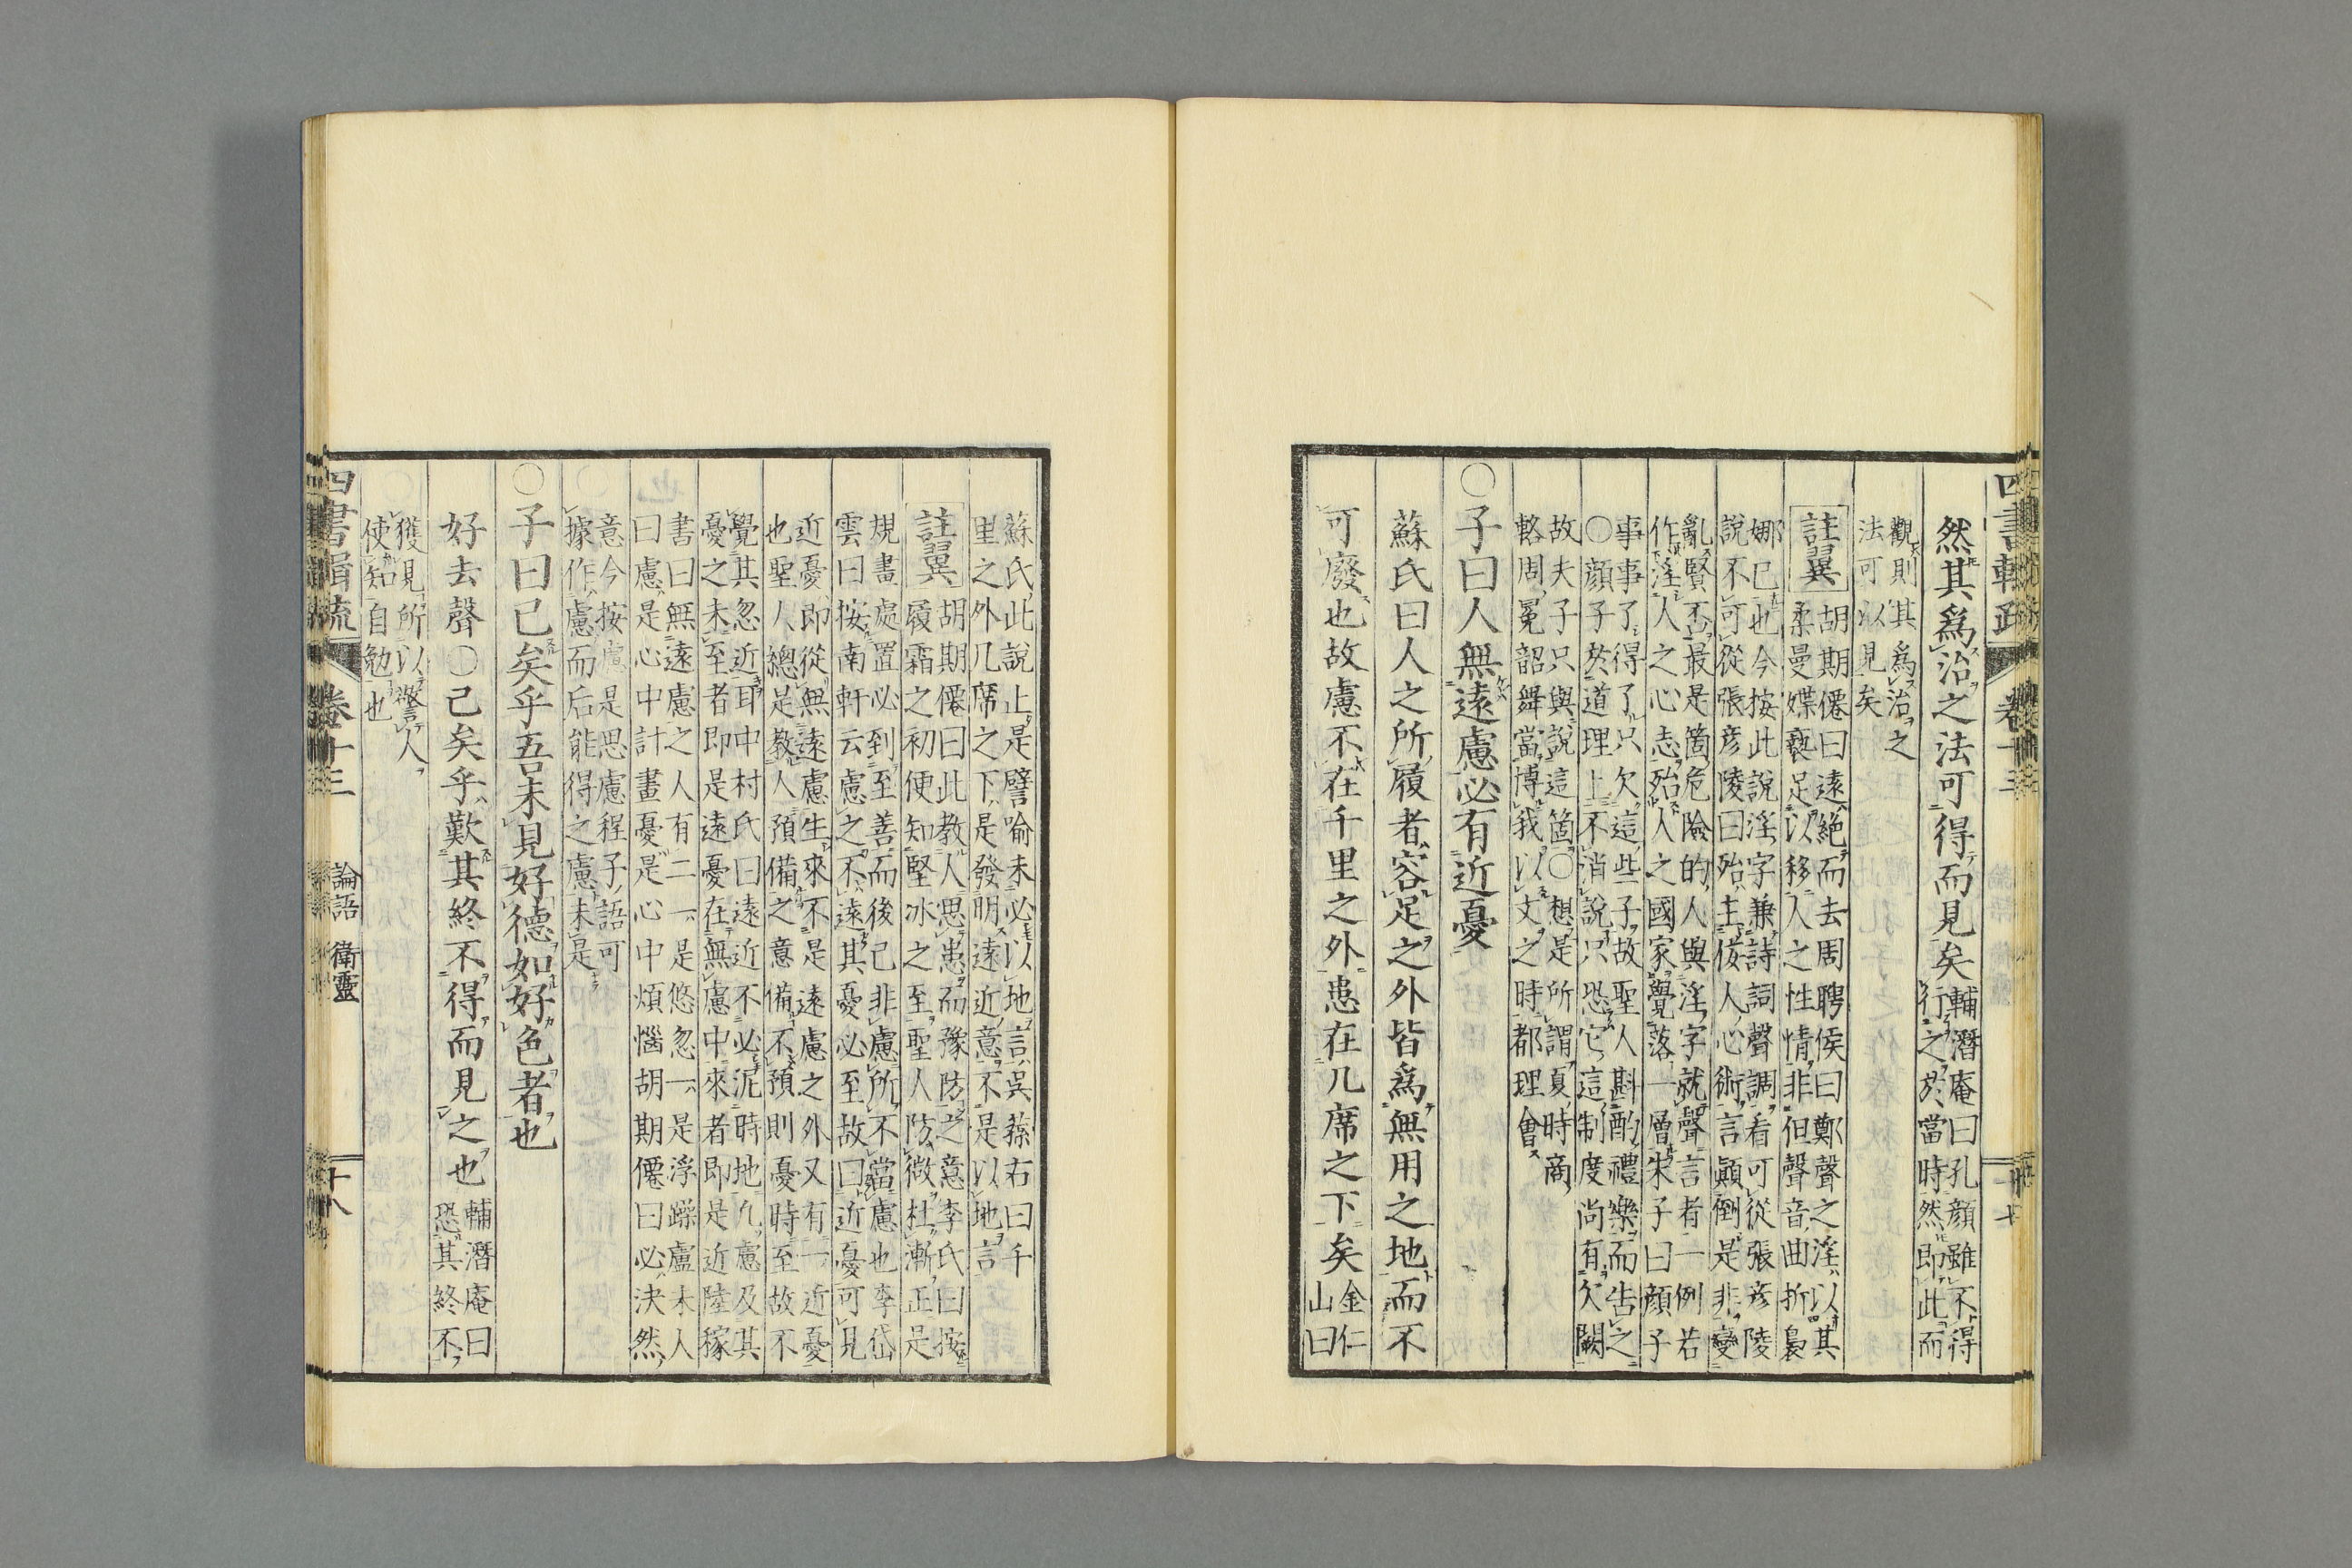 然其爲治之法可得而見矣輔潛庵曰孔顔雖不得
行之於當時然即此而
觀則其爲治之
法可以見矣
註翼
胡期僊曰遠絶而去周聘侯曰鄭聲之淫以其
柔曼媟褻足以移人之性情非但聲音曲折裊
娜已也今按此説淫字兼詩詞聲調看可從張彦陵
説不可從張彦陵曰殆主佞人心術言顚倒是非變
亂賢否最是箇危險的人與淫字就聲言者一例若
作淫人之心志殆人之國家覺落一層朱子曰顔子
事事了得了只欠這些子故聖人斟酌禮樂而告之
○顔子於道理上不消説只恐它這制度尚有欠闕
故夫子只與説這箇○想是所謂夏時商
輅周冕韶舞當博我以文之時都理會
○子曰人無遠慮必有近憂
蘇氏曰人之所履者容足之外皆爲無用之地而不
可廢也故慮不在千里之外患在几席之下矣金仁
山曰
四書輯疏
卷十三
十七
蘇氏此説上是譬喻未必以地言呉蓀右曰千
里之外几席之下是發明遠近意不是以地言
註翼
胡期僊曰此教人思患而豫防之意李氏曰按
履霜之初便知堅冰之至聖人防微杜漸正是
規畫處置必到至善而後已非慮所不當慮也李岱
雲曰按南軒云慮之不遠其憂必至故曰近憂可見
近憂即從無遠慮生來不是遠慮之外又有一近憂
也聖人總是教人預備之意備不預則憂時至故不
覺其忽近耳中村氏曰遠近不必泥時地凡慮及其
憂之未至者即是遠憂在無慮中來者即是近陸稼
書曰無遠慮之人有二一是悠忽一是浮躁盧未人
曰慮是心中計畫憂是心中煩惱胡期僊曰必決然
意今按慮是思慮程子語可
據作慮而后能得之慮未是
○子曰已矣乎吾未見好德如好色者也
好去聲○已矣乎歎其終不得而見之也輔潛庵曰
恐其終不
獲見所以警人
使知自勉也
四書輯疏
卷十三
論語
衛靈
十八